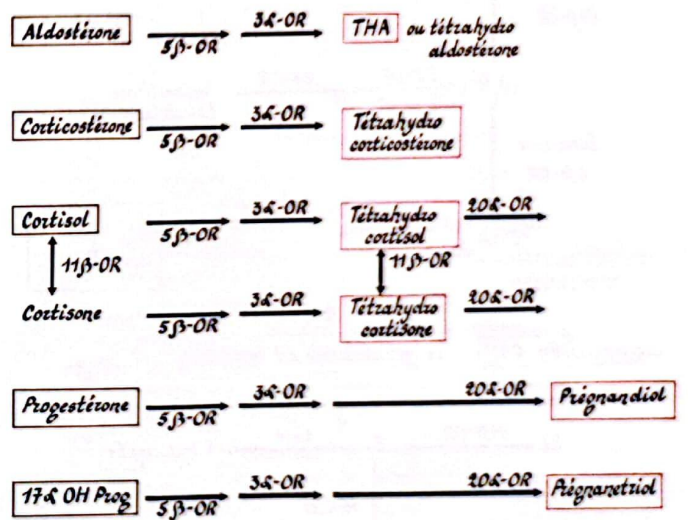 Aldostérone
5β-OR
3α-OR
THA ou tétrahydro
aldostérone
Corticostérone
5β-OR
3α-OR
Tétrahydro
corticostérone
Cortisol
5β-OR
3α-OR
Tétrahydro
cortisol
20α-OR
11β-OR
11β-OR
Cortisone
5β-OR
3α-OR
Tétrahydro
cortisone
20α-OR
Progestérone
5β-OR
3α-OR
20α-OR
Prégnandiol
17α OH Prog
5β-OR
3α-OR
20α-OR
Prégnanetriol